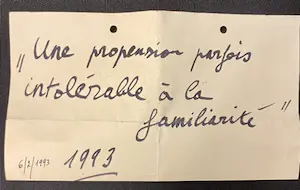 „Une propension parfois
intolérable à la
familiarité"
6/2/1993 1993